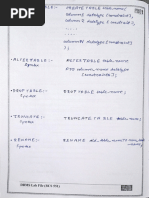 CREATE TABLE table_name(
column1 datatype [constraint],
column2 datatype [constraint],
columnN datatype [constraint]
);
→ ALTER TABLE :-
Syntax
ALTER TABLE table_name
ADD column_name datatype
[constraint];
→ DROP TABLE :-
Syntax
DROP TABLE table_name;
→ TRUNCATE :-
Syntax
TRUNCATE TABLE table_name;
→ RENAME :-
Syntax
DBMS Lab File (BCS-551)